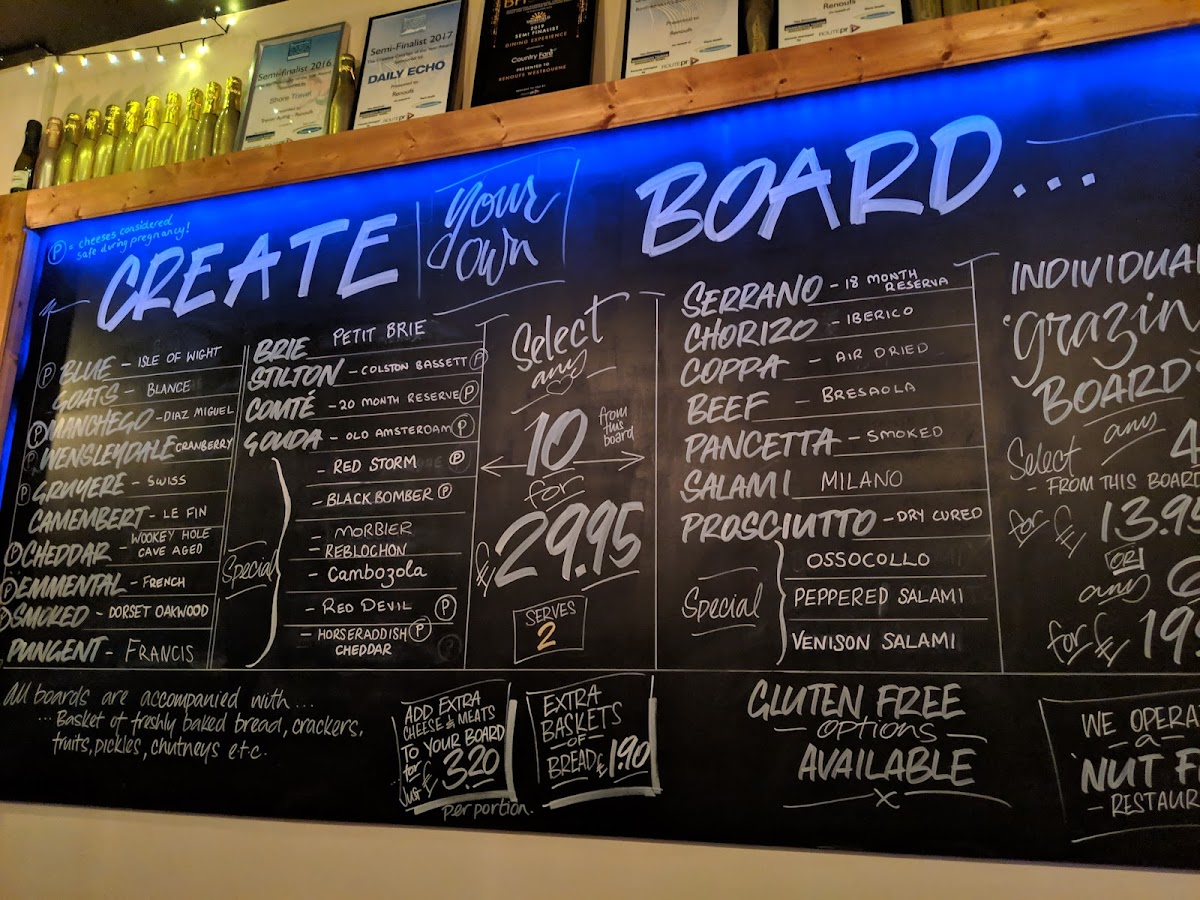 Semi-finalist 2016
Shore Travel
Semi-Finalist 2017
DAILY ECHO
Presented to
Renoufs
2019
SEMI FINALIST
DINING EXPERIENCE
Country Fare
PRESENTED TO
RENOUFS WESTBOURNE
Presented to
Renoufs
ROUTE pr
Renoufs
ROUTE pr
P = cheeses considered
safe during pregnancy!
CREATE your own BOARD...
P BLUE - ISLE OF WIGHT
GOATS - BLANCE
P MANCHEGO - DIAZ MIGUEL
P WENSLEYDALE CRANBERRY
P GRUYERE - SWISS
CAMEMBERT - LE FIN
P CHEDDAR - WOOKEY HOLE
CAVE AGED
P EMMENTAL - FRENCH
P SMOKED - DORSET OAKWOOD
PUNGENT - FRANCIS
BRIE PETIT BRIE
STILTON - COLSTON BASSETT P
COMTÉ - 20 MONTH RESERVE P
GOUDA - OLD AMSTERDAM P
Special
- RED STORM P
- BLACK BOMBER P
- MORBIER
- REBLOCHON
- Cambozola
- RED DEVIL P
- HORSERADDISH P
CHEDDAR
Select
any
10 from
this
board
for
£29.95
SERVES
2
SERRANO - 18 MONTH
RESERVA
CHORIZO - IBERICO
COPPA - AIR DRIED
BEEF - BRESAOLA
PANCETTA - SMOKED
SALAMI MILANO
PROSCIUTTO - DRY CURED
Special
OSSOCOLLO
PEPPERED SALAMI
VENISON SALAMI
INDIVIDUA
'grazin
BOARD
Select any 4
- FROM THIS BOARD
for £13.95
OR
any 6
for £19.
All boards are accompanied with...
... Basket of freshly baked bread, crackers,
fruits, pickles, chutneys etc.
ADD EXTRA
CHEESE & MEATS
TO YOUR BOARD
for
Just £3.20
per portion.
EXTRA
BASKETS
- OF -
BREAD £1.90
GLUTEN FREE
- options -
AVAILABLE
x
WE OPERA
- a -
'NUT F
- RESTAUR